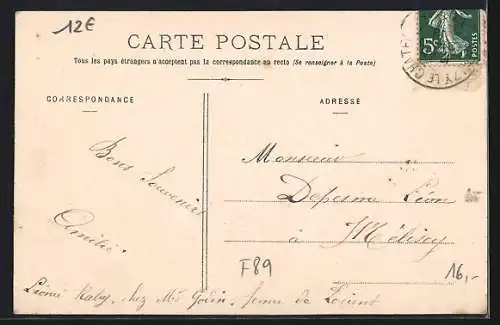 12€
CARTE POSTALE
Tous les pays étrangers n'acceptent pas la correspondance au recto (Se renseigner à la Poste)
5c
POSTES
ZY LE CHATEL
CORRESPONDANCE
ADRESSE
Bons Souvenirs
Amitié.
Monsieur
Léon
à Mélisey
F89
16,-
chez Mr Godin, ferme de Lorient